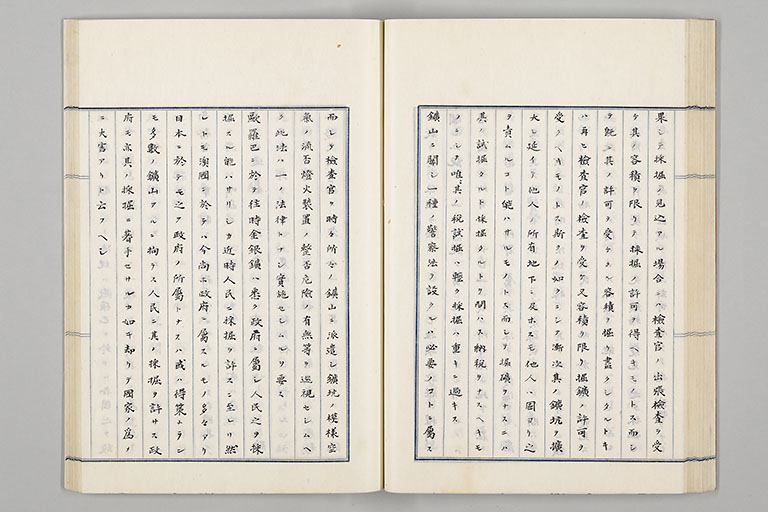 果シテ採掘ノ見込アル場合ニハ檢査官ハ出張檢査ヲ受
ケ其ノ容積ヲ限リテ採掘ノ許可ヲ得ヘキモノトス而シ
テ既ニ其ノ許可ヲ受ケタル容積ヲ掘リ盡クシタルトキ
ハ再ヒ檢査官ノ檢査ヲ受ケ又容積ヲ限リ掘鑛ノ許可ヲ
受クヘキモノトス斯クノ如クニシテ漸次其ノ鑛坑ヲ擴
大シ延イテ他人ノ所有地下ニ及ホスモ他人ハ固ヨリ之
ヲ責ムルコト能ハサルモノトス而シテ掘礦ヲナスニハ
其ノ試掘タルト採掘タルトヲ問ハス納税ヲナスヘキモ
ノニシテ唯其ノ税試掘ハ輕ク採掘ハ重キニ過キス
鑛山ニ關シ一種ノ警察法ヲ設クルハ必要ノコトニ屬ス
而シテ檢査官ヲ時々所々ノ鑛山ニ派遣シ鑛坑ノ模樣空
氣ノ流否燈火裝置ノ整否危險ノ有無等ヲ巡視セシムヘ
ク此法ハ一ノ法律トナシ實施セシムルヲ要ス
歐羅巴ニ於テ往時金銀鑛ハ悉ク政府ニ屬シ人民之ヲ採
掘スル能ハサリシカ近時人民ニ採掘ヲ許スニ至レリ然
レトモ澳國ニ於テハ今尚ホ政府ニ屬スルモノ多々アリ
日本ニ於テモ之ヲ政府ノ所屬トナスハ或ハ得策ナラン
モ多數ノ鑛山アルニ拘ラス人民ニ其ノ採掘ヲ許サス政
府モ亦其ノ採掘ニ着手セサルカ如キ却リテ國家ノ爲メ
ニ大害アリト云フヘシ